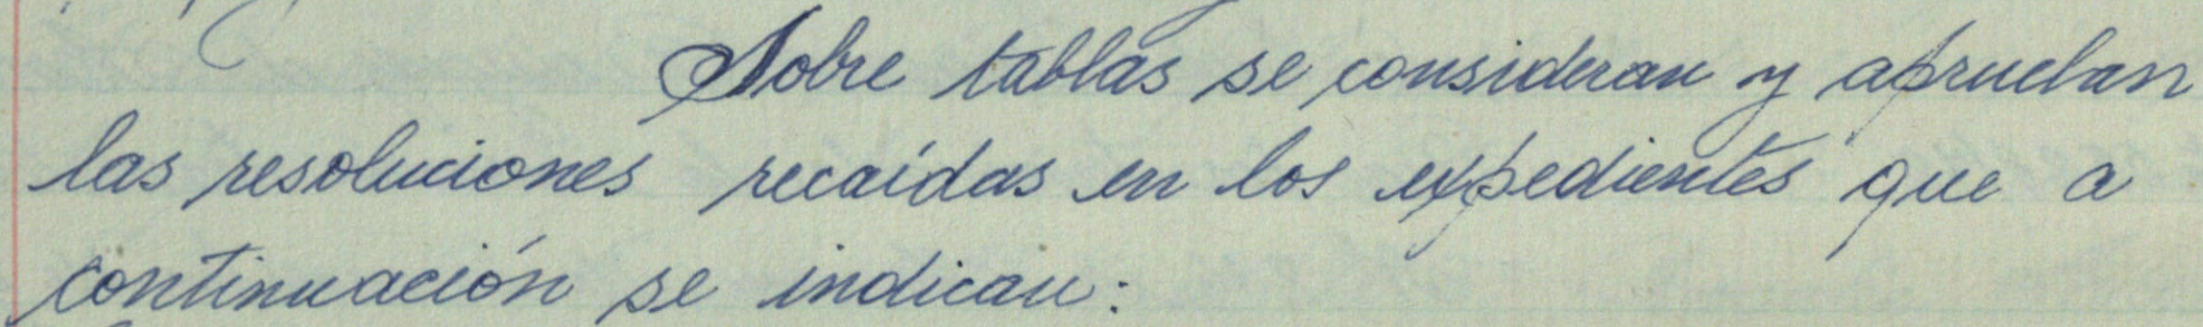 Sobre tablas se consideran y aprueban
las resoluciones recaídas en los expedientes que a
continuación se indican: